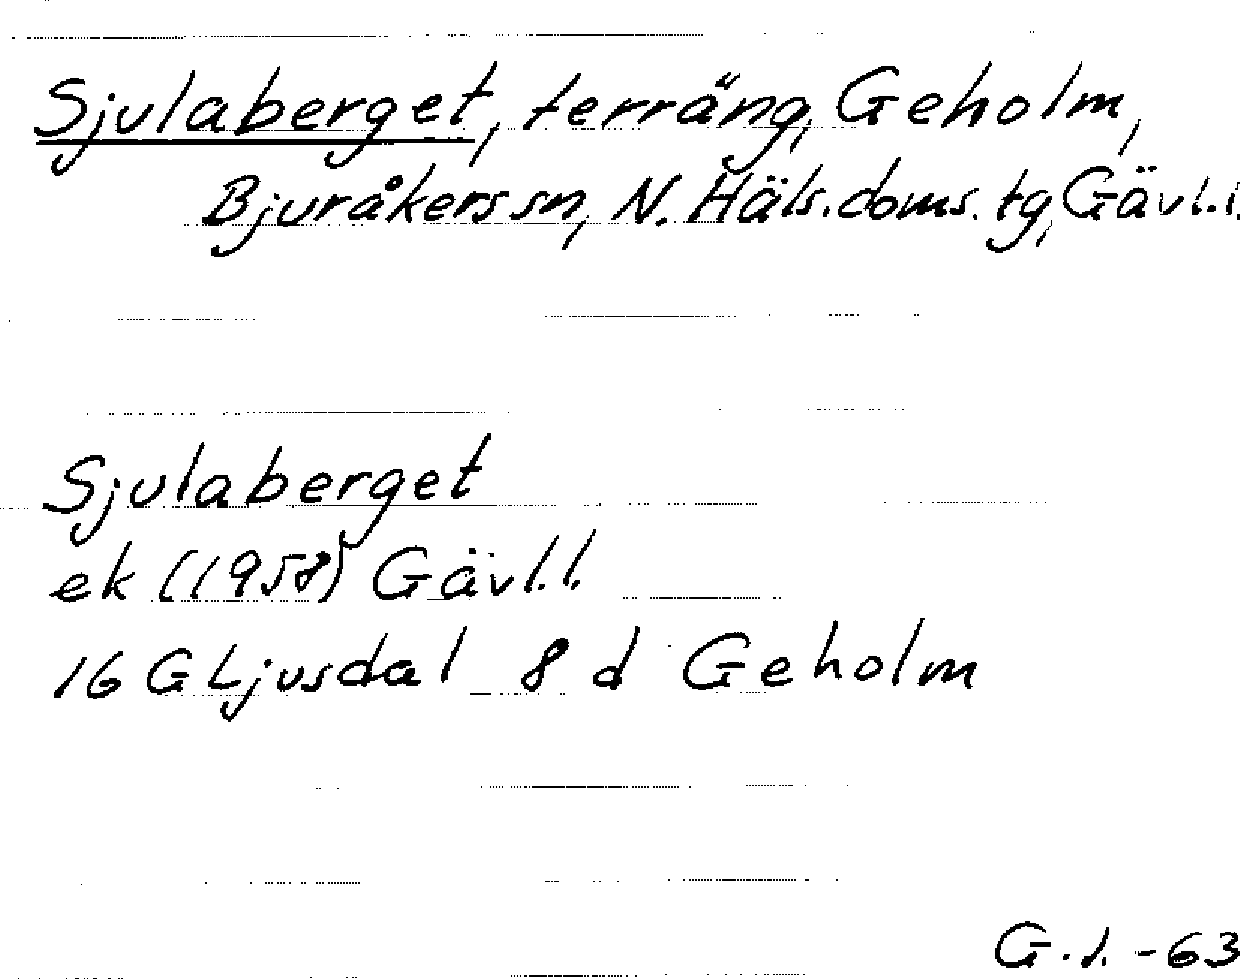 Sjulaberget, terräng, Geholm,
Bjuråkers sn, N. Häls. doms. tg, Gävl.l.
Sjulaberget
ek (1958) Gävl.l.
16 G Ljusdal 8 d Geholm
G.l. -63